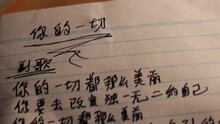 你的一切
副歌
你的一切都那么美丽
你要去改良独一无二的自己
你的一切都那么美丽